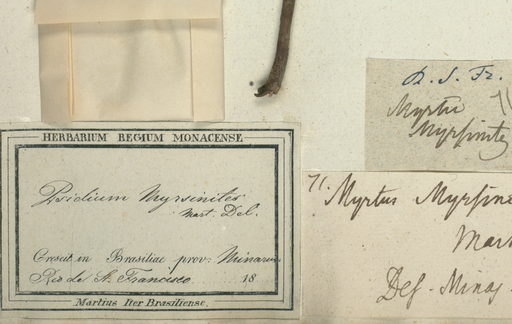 HERBARIUM REGIUM MONACENSE
Psidium Myrsinites
Mart. Del.
Crescit in Brasiliae prov: Minarum
Rio de S. Francisco. 18
Martius Iter Brasiliense.
R. S. Fr.
71
Myrtus
Myrsinites
71. Myrtus Myrsine
Mart
Des. Minas